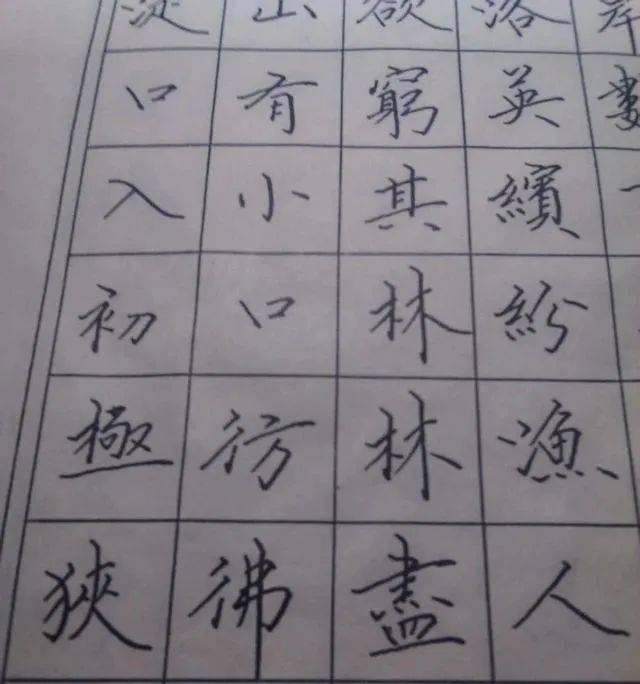 岸數
落英繽紛漁人
欲窮其林林盡
山有小口彷彿
從口入初極狹